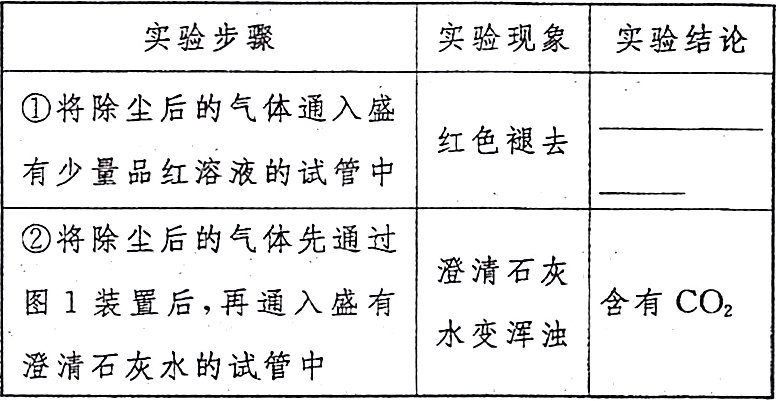 实验步骤 实验现象 实验结论
①将除尘后的气体通入盛
有少量品红溶液的试管中
红色褪去
②将除尘后的气体先通过
图1装置后,再通入盛有
澄清石灰水的试管中
澄清石灰
水变浑浊
含有 CO₂